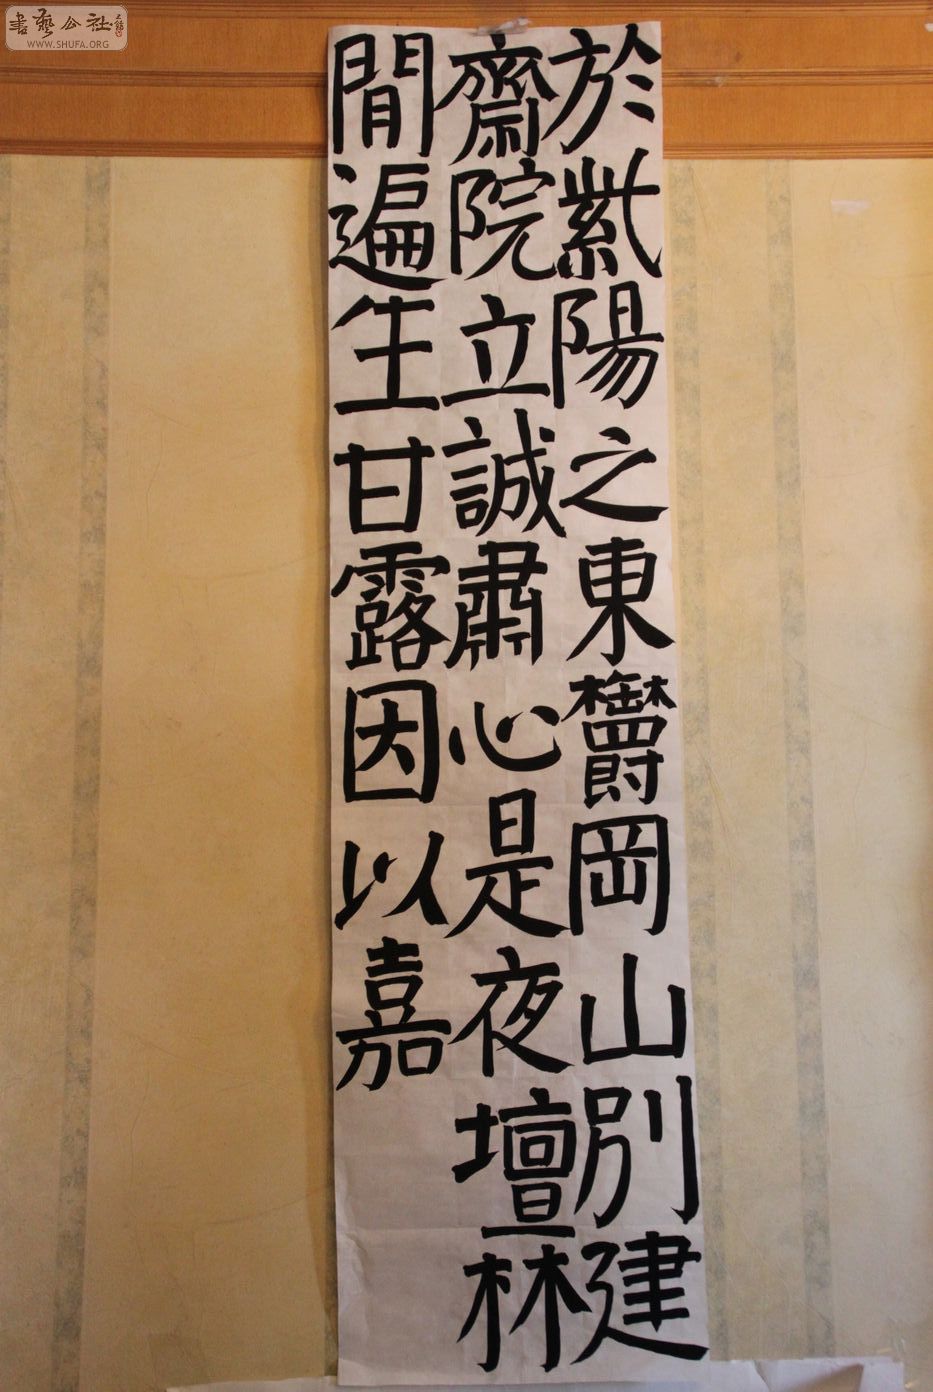 於紫陽之東欝岡山別建
齋院立誠肅心是夜壇林
間遍生甘露因以嘉
書藝公社
WWW.SHUFA.ORG